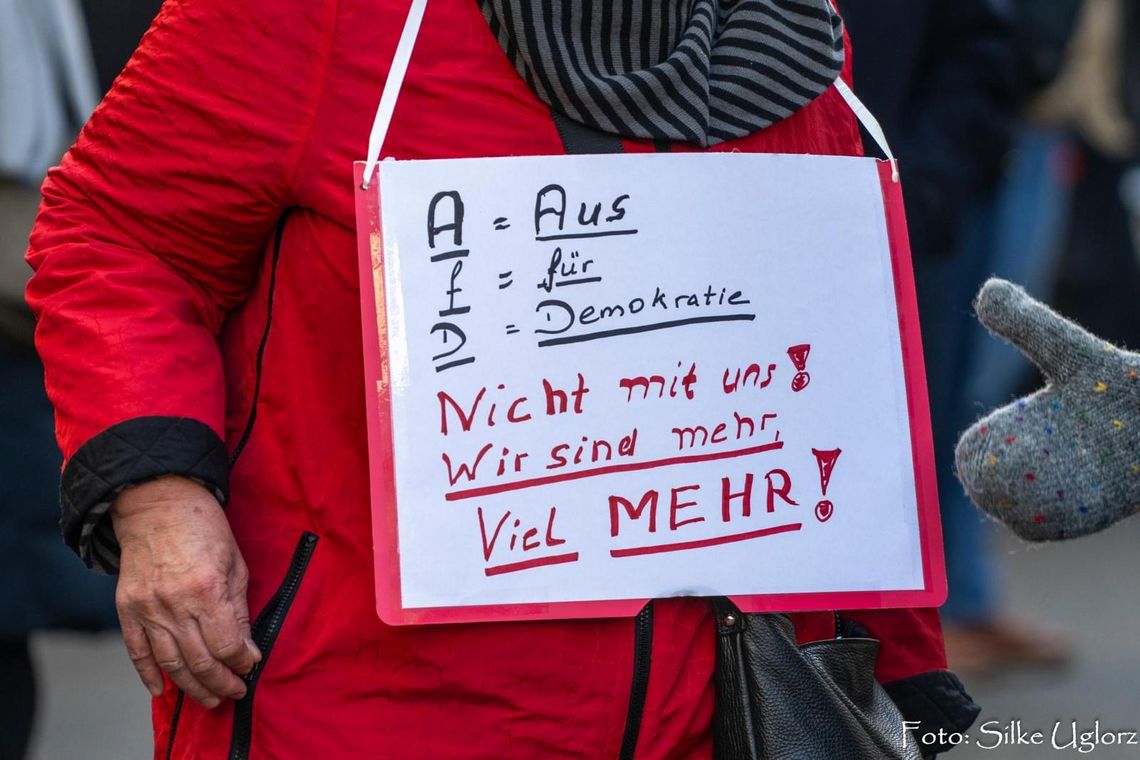 A = Aus
f = für
D = Demokratie
Nicht mit uns!
Wir sind mehr,
Viel MEHR!
Foto: Silke Uglorz